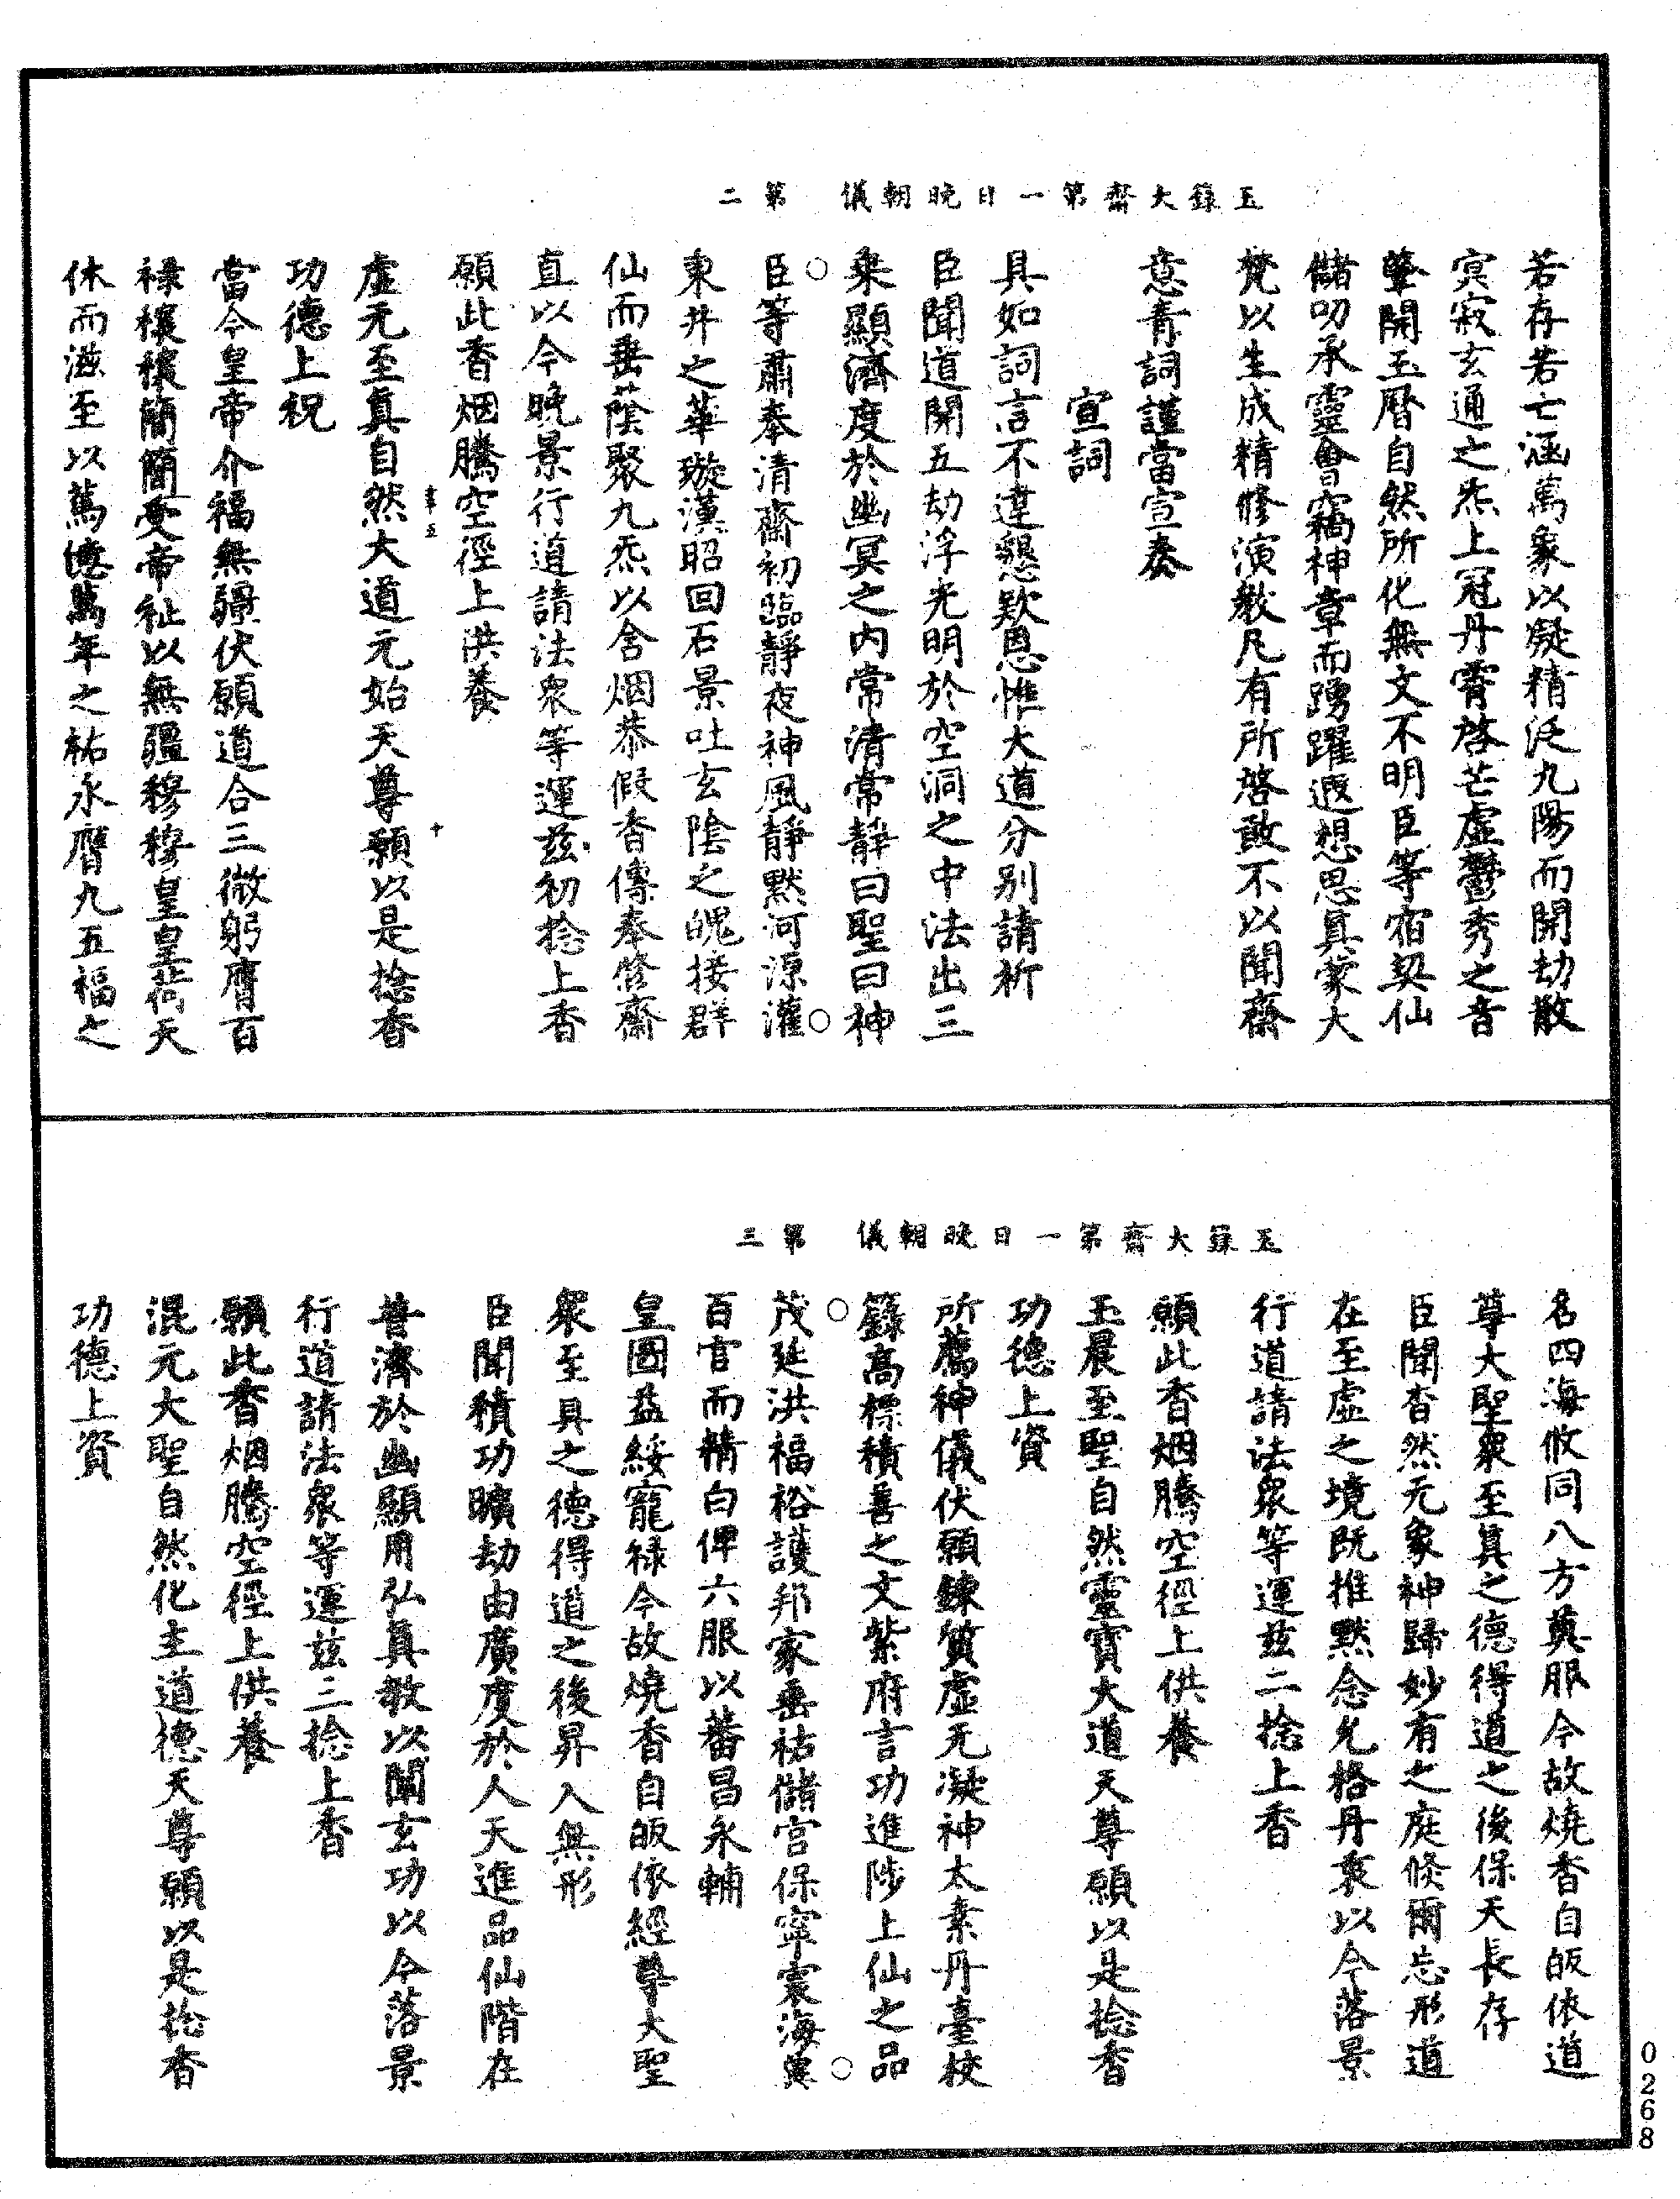 玉籙大齋第一日晚朝儀　第二
若存若亡涵萬象以凝精泛九陽而開劫散
㝠寂玄通之炁上冠丹霄啓芒虛鬱秀之音
肇開玉曆自然所化無文不明臣等宿契仙
儲叨承靈會竊神章而踴躍遐想思真蒙大
梵以生成精修演敎凡有所啓敢不以聞齋
意青詞謹當宣奏
宣詞
具如詞言不違懇欵恩惟大道分別請祈
臣聞道開五劫浮光明於空洞之中法出三
乘顯濟度於幽冥之内常清常靜曰聖曰神
臣等肅奉清齋初臨靜夜神風靜默河源灌
東井之華璇漢昭回石景吐玄陰之魄接群
仙而垂蔭聚九炁以含烟恭假香傳奉修齋
直以今晚景行道請法眾等運茲初捻上香
願此香烟騰空徑上洪養
虛无至真自然大道元始天尊願以是捻香
功德上祝
當今皇帝介福無疆伏願道合三微躬膺百
祿穰穰簡簡受帝祉以無疆穆穆皇皇荷天
休而滋至以萬億萬年之祐永膺九五福之
韋五
十
玉籙大齋第一日晚朝儀　第三
名四海攸同八方莫服今故燒香自皈依道
尊大聖眾至真之德得道之後保天長存
臣聞杳然元象神歸妙有之庭倏爾忘形道
在至虛之境既推黙念允格丹衷以今落景
行道請法眾等運茲二捻上香
願此香烟騰空徑上供養
玉晨至聖自然靈寶大道天尊願以是捻香
功德上資
所薦神儀伏願鍊質虛无凝神太素丹臺校
籙高標積善之文紫府言功進陟上仙之品
茂延洪福裕護邦家垂祜儲宮保寧寰海薫
百官而精白俾六服以蕃昌永輔
皇圖益綏寵祿今故燒香自皈依經尊大聖
眾至具之德得道之後昇入無形
臣聞積功曠劫由廣度於人天進品仙階在
普濟於幽顯用弘真教以闡玄功以今落景
行道請法眾等運茲三捻上香
願此香烟騰空徑上供養
混元大聖自然化主道德天尊願以是捻香
功德上資
0268